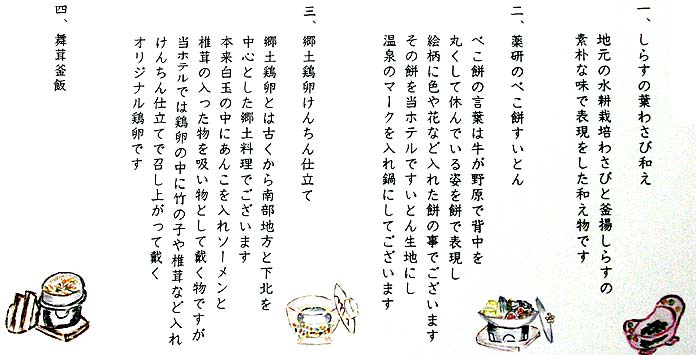 一、しらすの葉わさび和え
地元の水耕栽培わさびと釜揚しらすの
素朴な味で表現をした和え物です
二、薬研のべこ餅すいとん
べこ餅の言葉は牛が野原で背中を
丸くして休んでいる姿を餅で表現し
絵柄に色や花など入れた餅の事でございます
その餅を当ホテルですいとん生地にし
温泉のマークを入れ鍋にしてございます
三、郷土鶏卵けんちん仕立て
郷土鶏卵とは古くから南部地方と下北を
中心とした郷土料理でございます
本来白玉の中にあんこを入れソーメンと
椎茸の入った物を吸い物として戴く物ですが
当ホテルでは鶏卵の中に竹の子や椎茸など入れ
けんちん仕立てで召し上がって戴く
オリジナル鶏卵です
四、舞茸釜飯